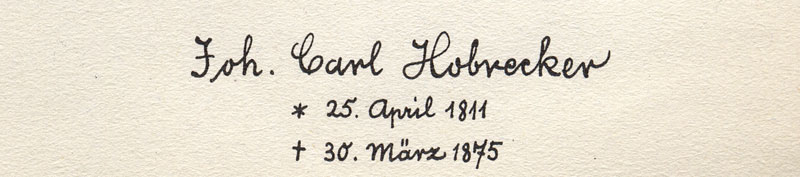 Joh. Carl Hobrecker
* 25. April 1811
† 30. März 1875